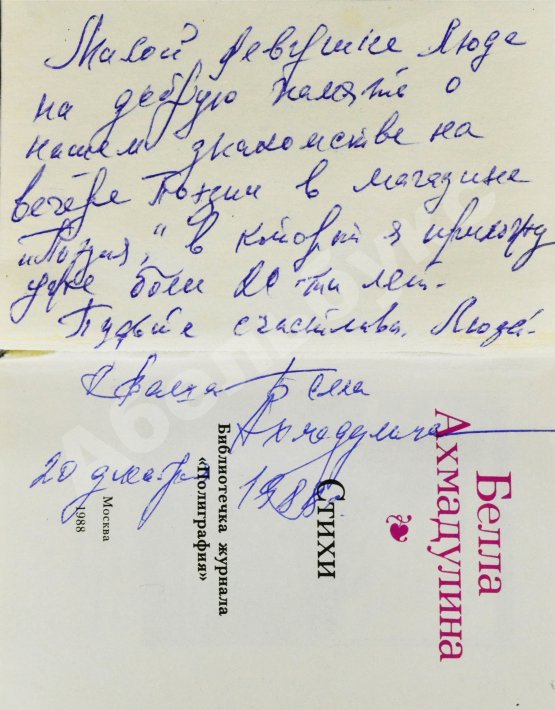 Милой девушке Люде
на добрую память о
нашем знакомстве на
вечере Поэзии в магазине
„Поэзия", в который я прихожу
уже более 20-ти лет.
Будьте счастливы. Люда.
Ваша Белла
Ахмадулина
20 декабря 1988
Белла
Ахмадулина
Стихи
Библиотечка журнала
«Полиграфия»
Москва
1988